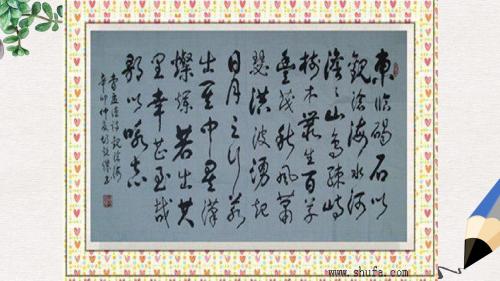 東临碣石以
觀滄海水何
澹々山島竦峙
樹木叢生百草
豐茂秋風蕭
瑟洪波湧起
日月之行若
出其中星漢
燦爛若出其
里幸甚至哉
歌以咏志
曹孟德詩觀滄海
辛卯仲夏
www.shufa.com